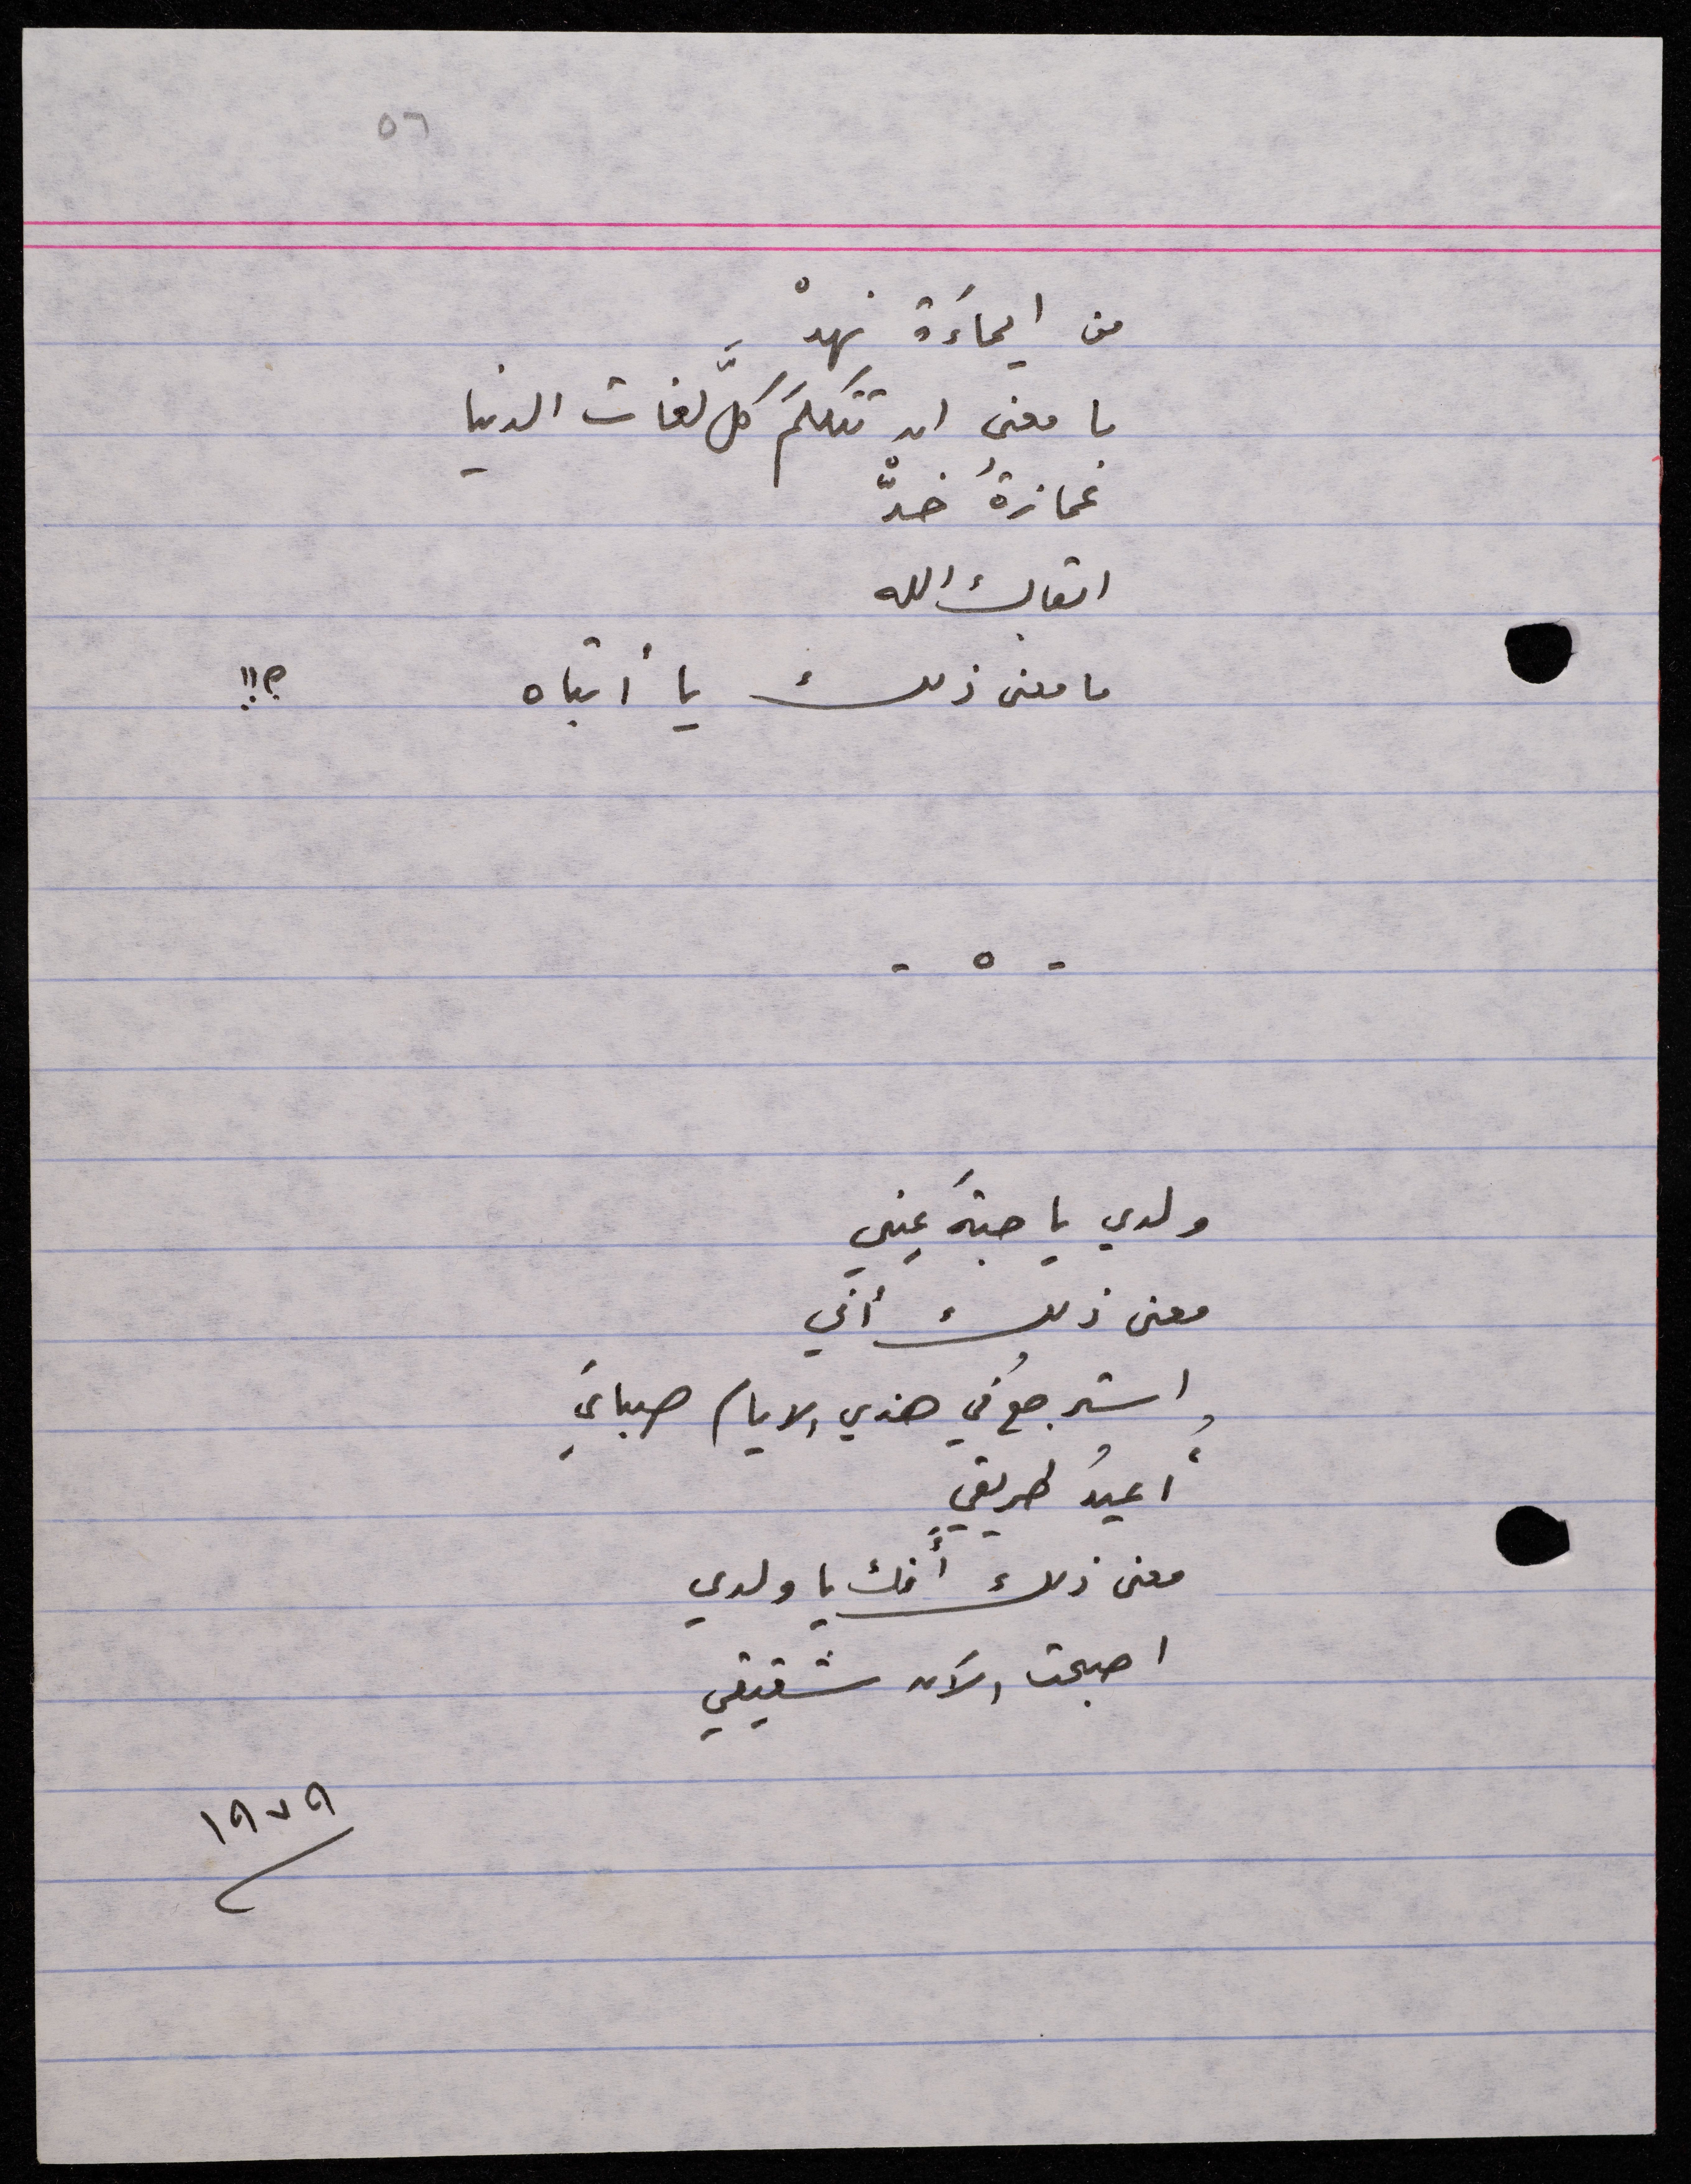 ٥٦
من ايماءَة نهدْ
ما معنى ان تتكلمَ كلَّ لغات الدنيا
غمازةُ خدّْ
ابقاك الله
ما معنى ذلك يا أبتاه ؟!!
- ٥ -
ولدي يا حبةَ عيني
معنى ذلك أني
استرجعُ في هذي الايام صبايَ
وأُعيدُ طريقي
معنى ذلك أنك يا ولدي
اصبحت الآن شقيقي
١٩٧٩